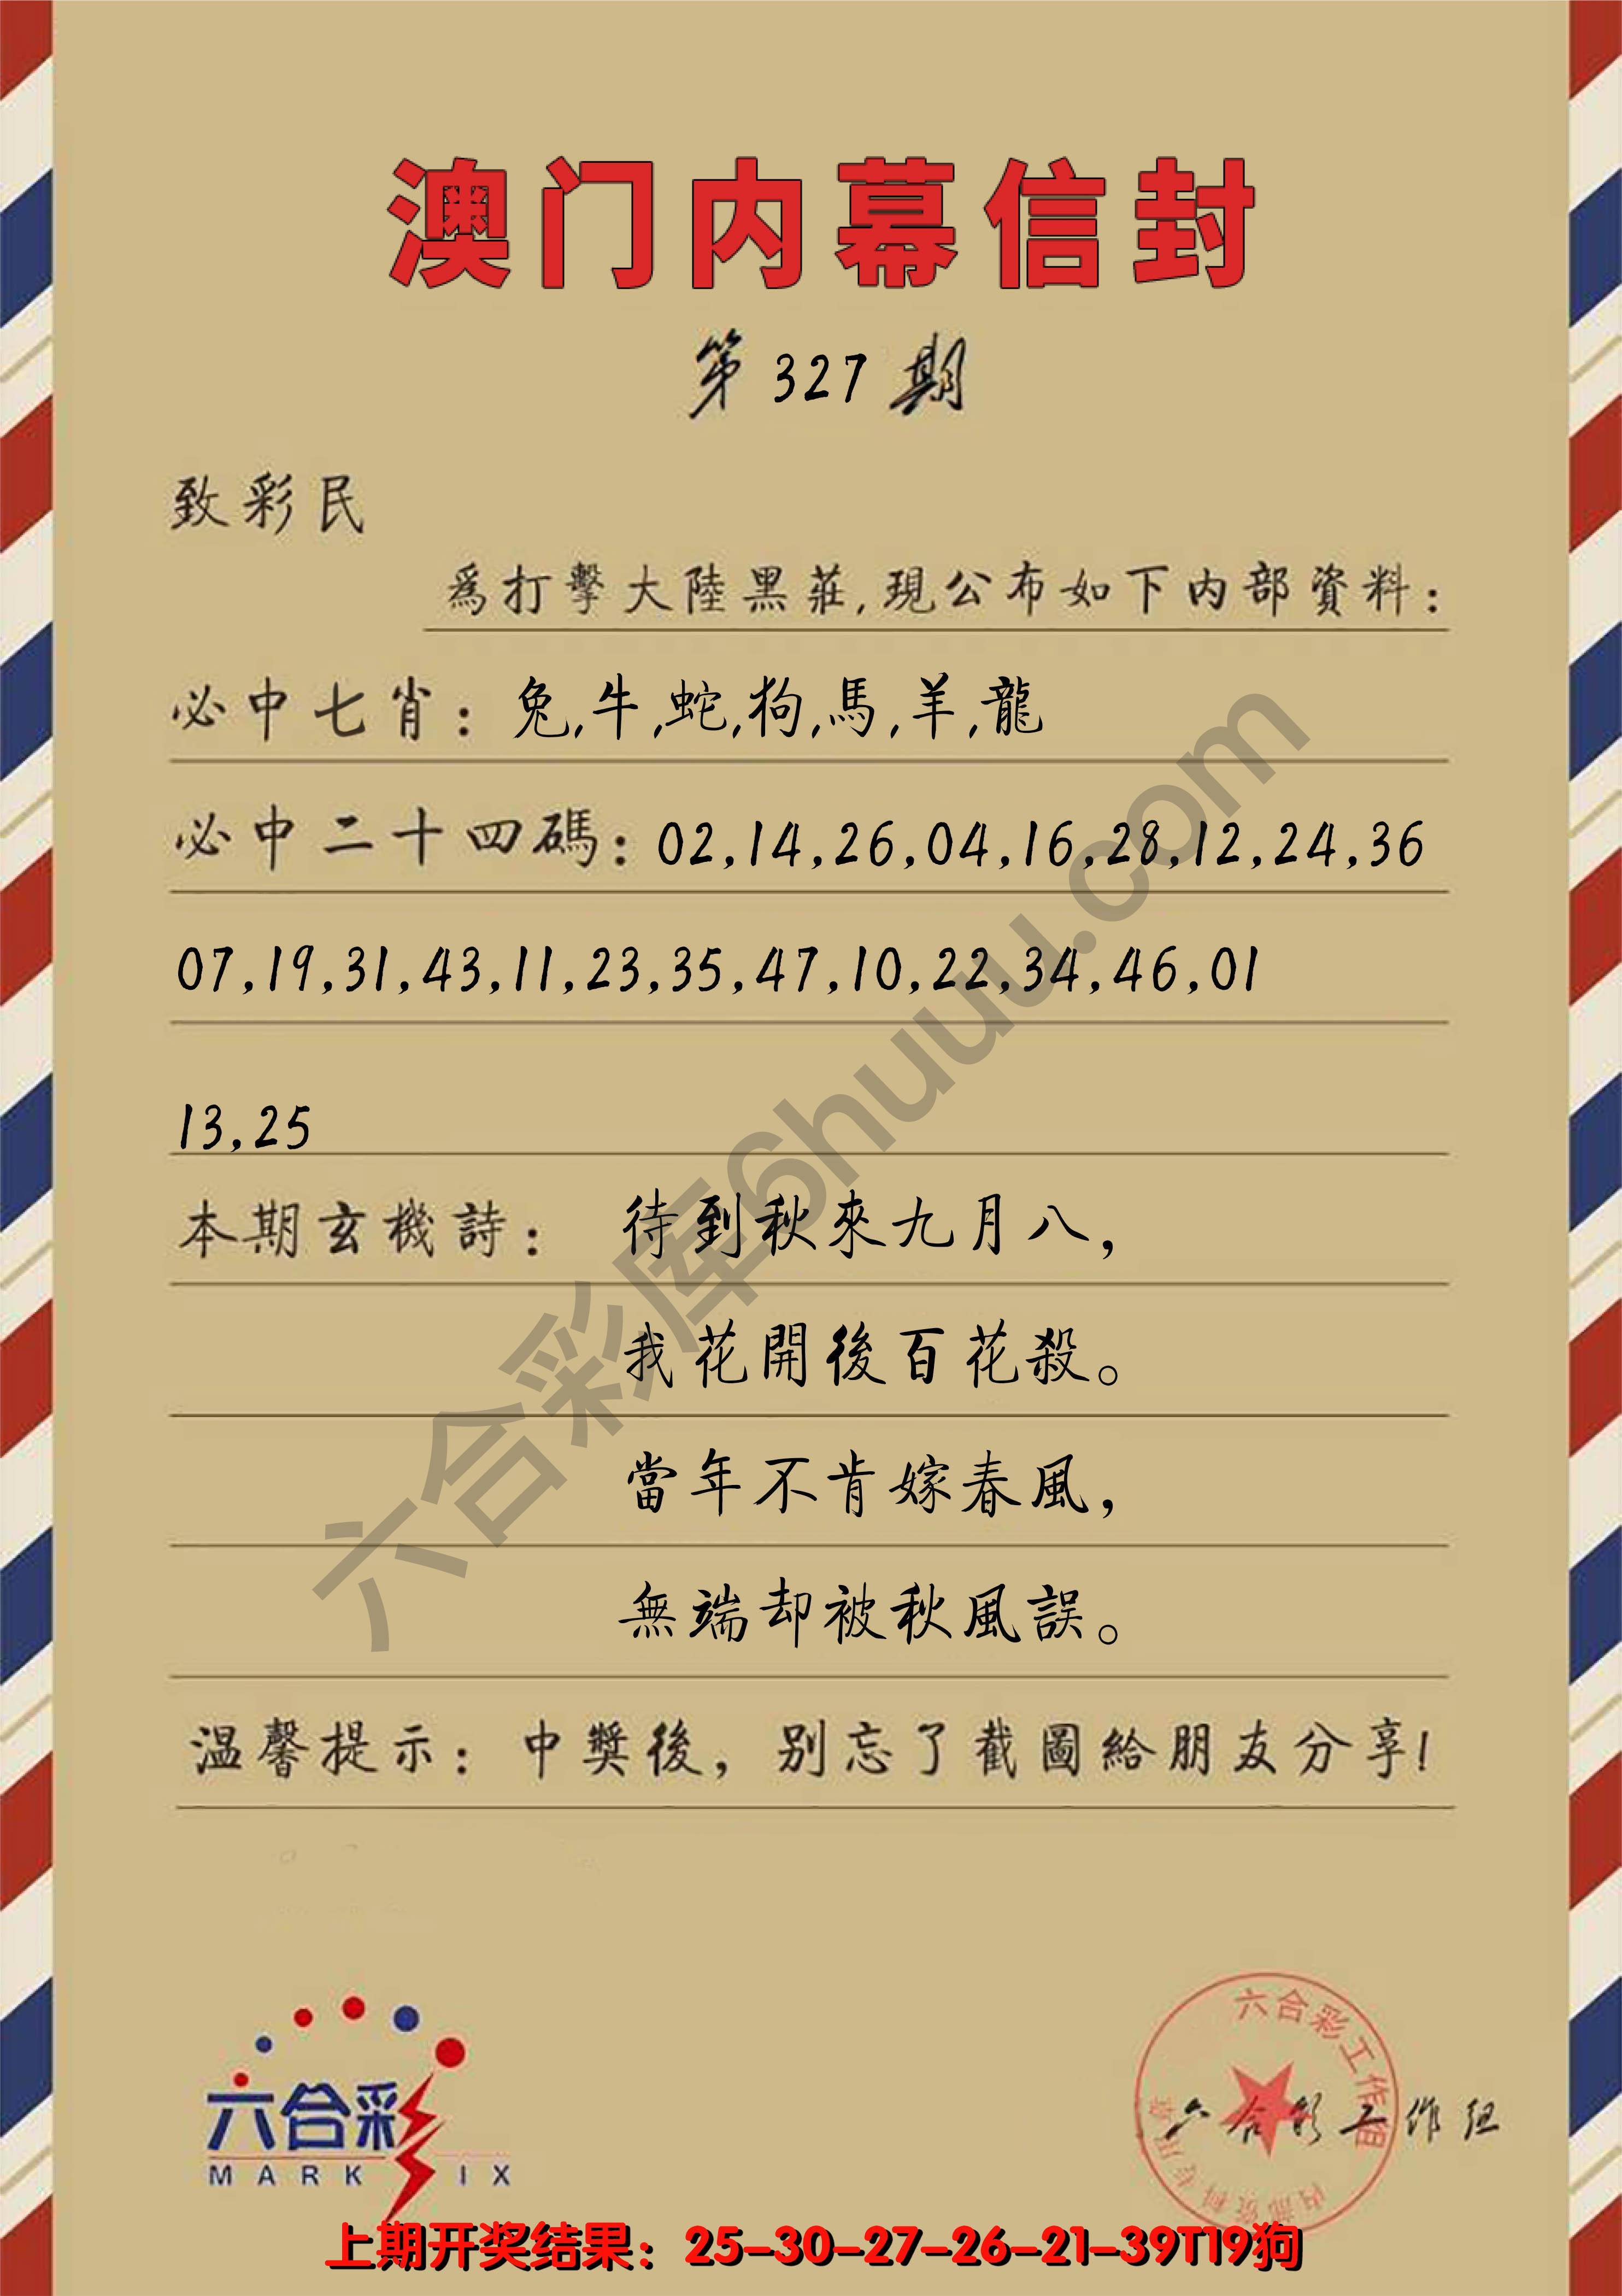 澳门内幕信封
第 327 期
致彩民
爲打擊大陸黑莊,現公布如下内部資料:
必中七肖: 兔,牛,蛇,狗,馬,羊,龍
必中二十四碼: 02,14,26,04,16,28,12,24,36
07,19,31,43,11,23,35,47,10,22,34,46,01
13,25
本期玄機詩: 待到秋來九月八,
我花開後百花殺。
當年不肯嫁春風,
無端却被秋風誤。
温馨提示: 中獎後, 别忘了截圖給朋友分享!
六合彩库6huuu.com
六合彩
MARK IX
六合彩工作组
内部资料专用章
六合彩工作组
上期开奖结果: 25-30-27-26-21-39T19狗